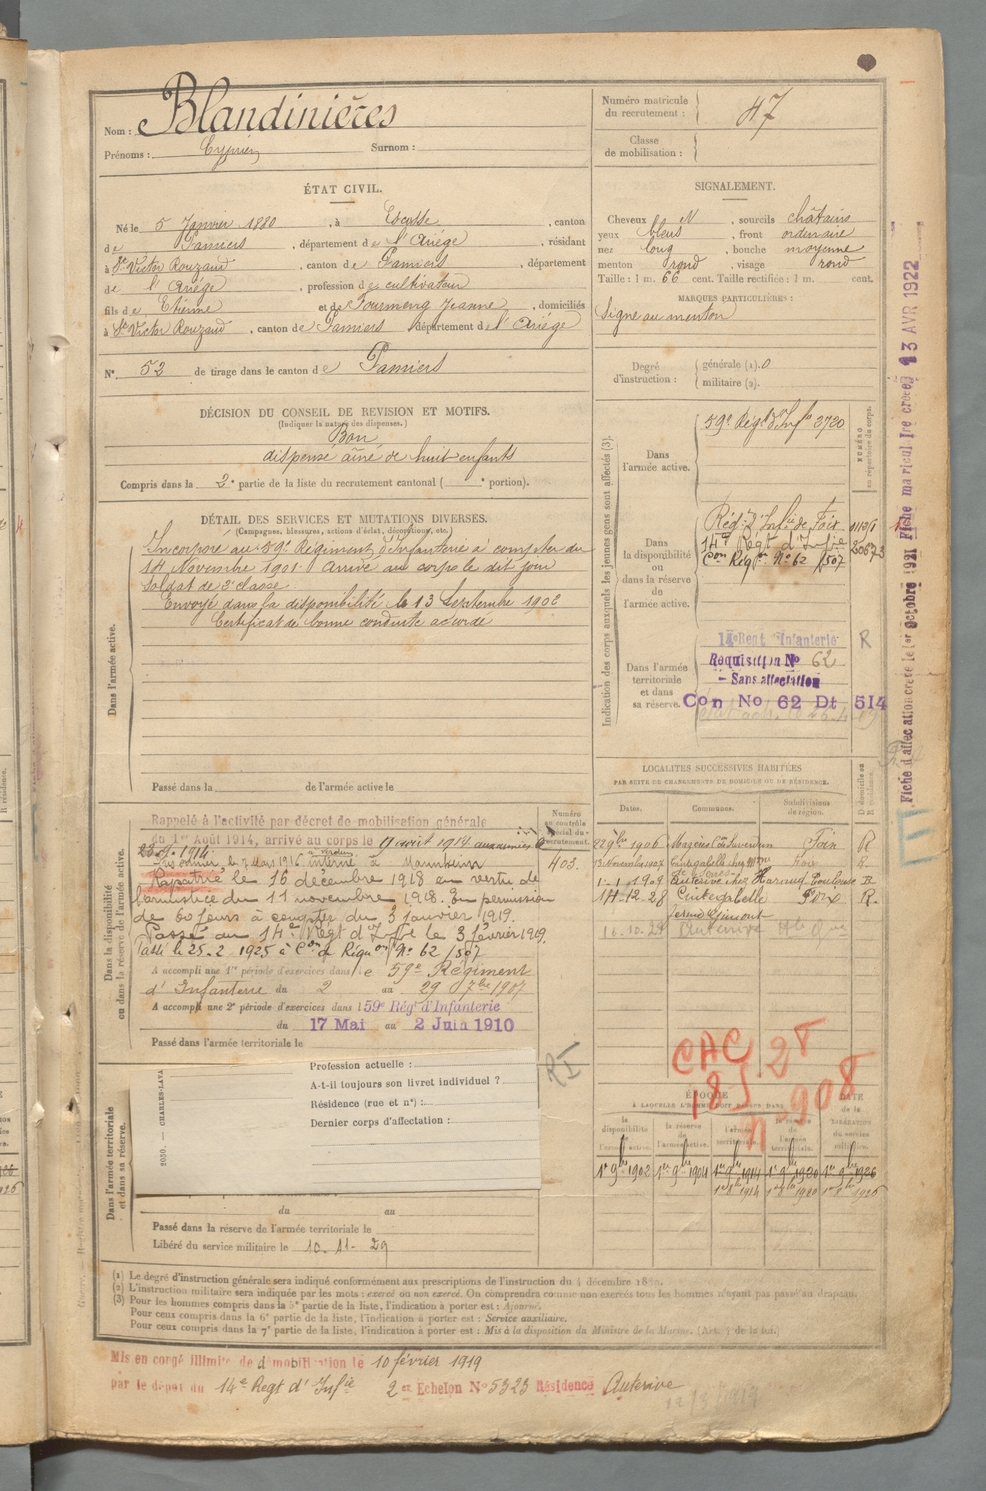 Nom : Blandinières
Prénoms : Cyprien Surnom :
Numéro matricule du recrutement : 47
Classe de mobilisation :
ÉTAT CIVIL.
Né le 5 Janvier 1880, à Escosse, canton
de Pamiers, département de l'Ariége, résidant
à St Victor Rouzaud, canton de Pamiers, département
de l'Ariége, profession de cultivateur
fils de Etienne et de Jeanne, domiciliés
à St Victor Rouzaud, canton de Pamiers département de l'Ariége
N° 52 de tirage dans le canton de Pamiers
SIGNALEMENT.
Cheveux N, sourcils châtains
yeux bleus, front ordinaire
nez long, bouche moyenne
menton rond, visage rond
Taille : 1 m. 66 cent. Taille rectifiée : 1 m. cent.
MARQUES PARTICULIÈRES :
Signe au menton
Degré d'instruction : générale (1). 0
militaire (2).
DÉCISION DU CONSEIL DE REVISION ET MOTIFS.
(Indiquer la nature des dispenses.)
Bon
dispense aîné de huit enfants
Compris dans la 2e partie de la liste du recrutement cantonal ( e portion).
DÉTAIL DES SERVICES ET MUTATIONS DIVERSES.
(Campagnes, blessures, actions d'éclat, décorations, etc.)
Dans l'armée active.
Incorporé au 59e Régiment d'Infanterie à compter du
14 Novembre 1901. Arrivé au corps le dit jour
Soldat de 2e classe
Envoyé dans la disponibilité le 13 Septembre 1902
Certificat de bonne conduite accordé
Passé dans la de l'armée active le
Indication des corps auxquels les jeunes gens sont affectés (3).
NUMÉRO au répertoire du corps.
Dans l'armée active.
59e Régt d'Infie 3720
Dans la disponibilité ou dans la réserve de l'armée active.
Régt d'Infie de Foix
14e Régt d'Infie
Con Régon N° 62 /507
Dans l'armée territoriale et dans sa réserve.
14e Régt Infanterie R
Requisition No 62
- Sans affectation
Con No 62 Dt 514
Fiche d'affectation créée le 1er Octobre 1921 Fiche matricul 1re créée 13 AVR 1922
Dans la disponibilité ou dans la réserve de l'armée active.
Rappelé à l'activité par décret de mobilisation générale
du 1er Août 1914, arrivé au corps le
Numéro au contrôle spécial du recrutement.
403.
interné à Mannheim
Rapatrié le 16 décembre 1918 en vertu de
l'armistice du 11 novembre 1918. En permission
de 60 jours à compter du 3 janvier 1919.
Passé au 14e Régt d'Infie le 3 février 1919.
Passé le 25-2-1925 à Con de Réquon N° 62 /507
A accompli une 1re période d'exercices dans le 59e Régiment
d'Infanterie du 2 au 29 7bre 1907
A accompli une 2e période d'exercices dans l 59e Régt d'Infanterie
du 17 Mai au 2 Juin 1910
Passé dans l'armée territoriale le
LOCALITÉS SUCCESSIVES HABITÉES
PAR SUITE DE CHANGEMENTS DE DOMICILE OU DE RÉSIDENCE.
Dates. Communes. Subdivisions de région. D domicile ou R résidence.
22 9bre 1906 Foix R
13 Novembre 1907 Foix R
1-1-1909 Auterive chez Toulouse R
14-12-28 Cintegabelle Foix R.
16.10.29 Auterive
Dans l'armée territoriale et dans sa réserve.
2050. — CHARLES-LAVA
Profession actuelle :
A-t-il toujours son livret individuel ?
Résidence (rue et n°) :
Dernier corps d'affectation :
RI
CAC 28
185
908
ÉPOQUE
À LAQUELLE L'HOMME DOIT PASSER DANS
DATE de la LIBÉRATION du service militaire
la disponibilité de l'armée active. la réserve de l'armée active. l'armée territoriale. la réserve de l'armée territoriale.
1er 9bre 1902 1er 9bre 1904 1er 9bre 1914 1er 9bre 1920 1er 9bre 1926
du au
Passé dans la réserve de l'armée territoriale le
Libéré du service militaire le 10-11-29
(1) Le degré d'instruction générale sera indiqué conformément aux prescriptions de l'instruction du 4 décembre 1889.
(2) L'instruction militaire sera indiquée par les mots : exercé ou non exercé. On comprendra comme non exercés tous les hommes n'ayant pas passé au drapeau.
(3) Pour les hommes compris dans la 5e partie de la liste, l'indication à porter est : Ajourné.
Pour ceux compris dans la 6e partie de la liste, l'indication à porter est : Service auxiliaire.
Pour ceux compris dans la 7e partie de la liste, l'indication à porter est : Mis à la disposition du Ministre de la Marine. (Art. de la loi.)
Mis en congé illimité de démobilisation le 10 février 1919
par le dépot du 14e Régt d'Infie 2e Echelon N° 5323 Résidence Auterive